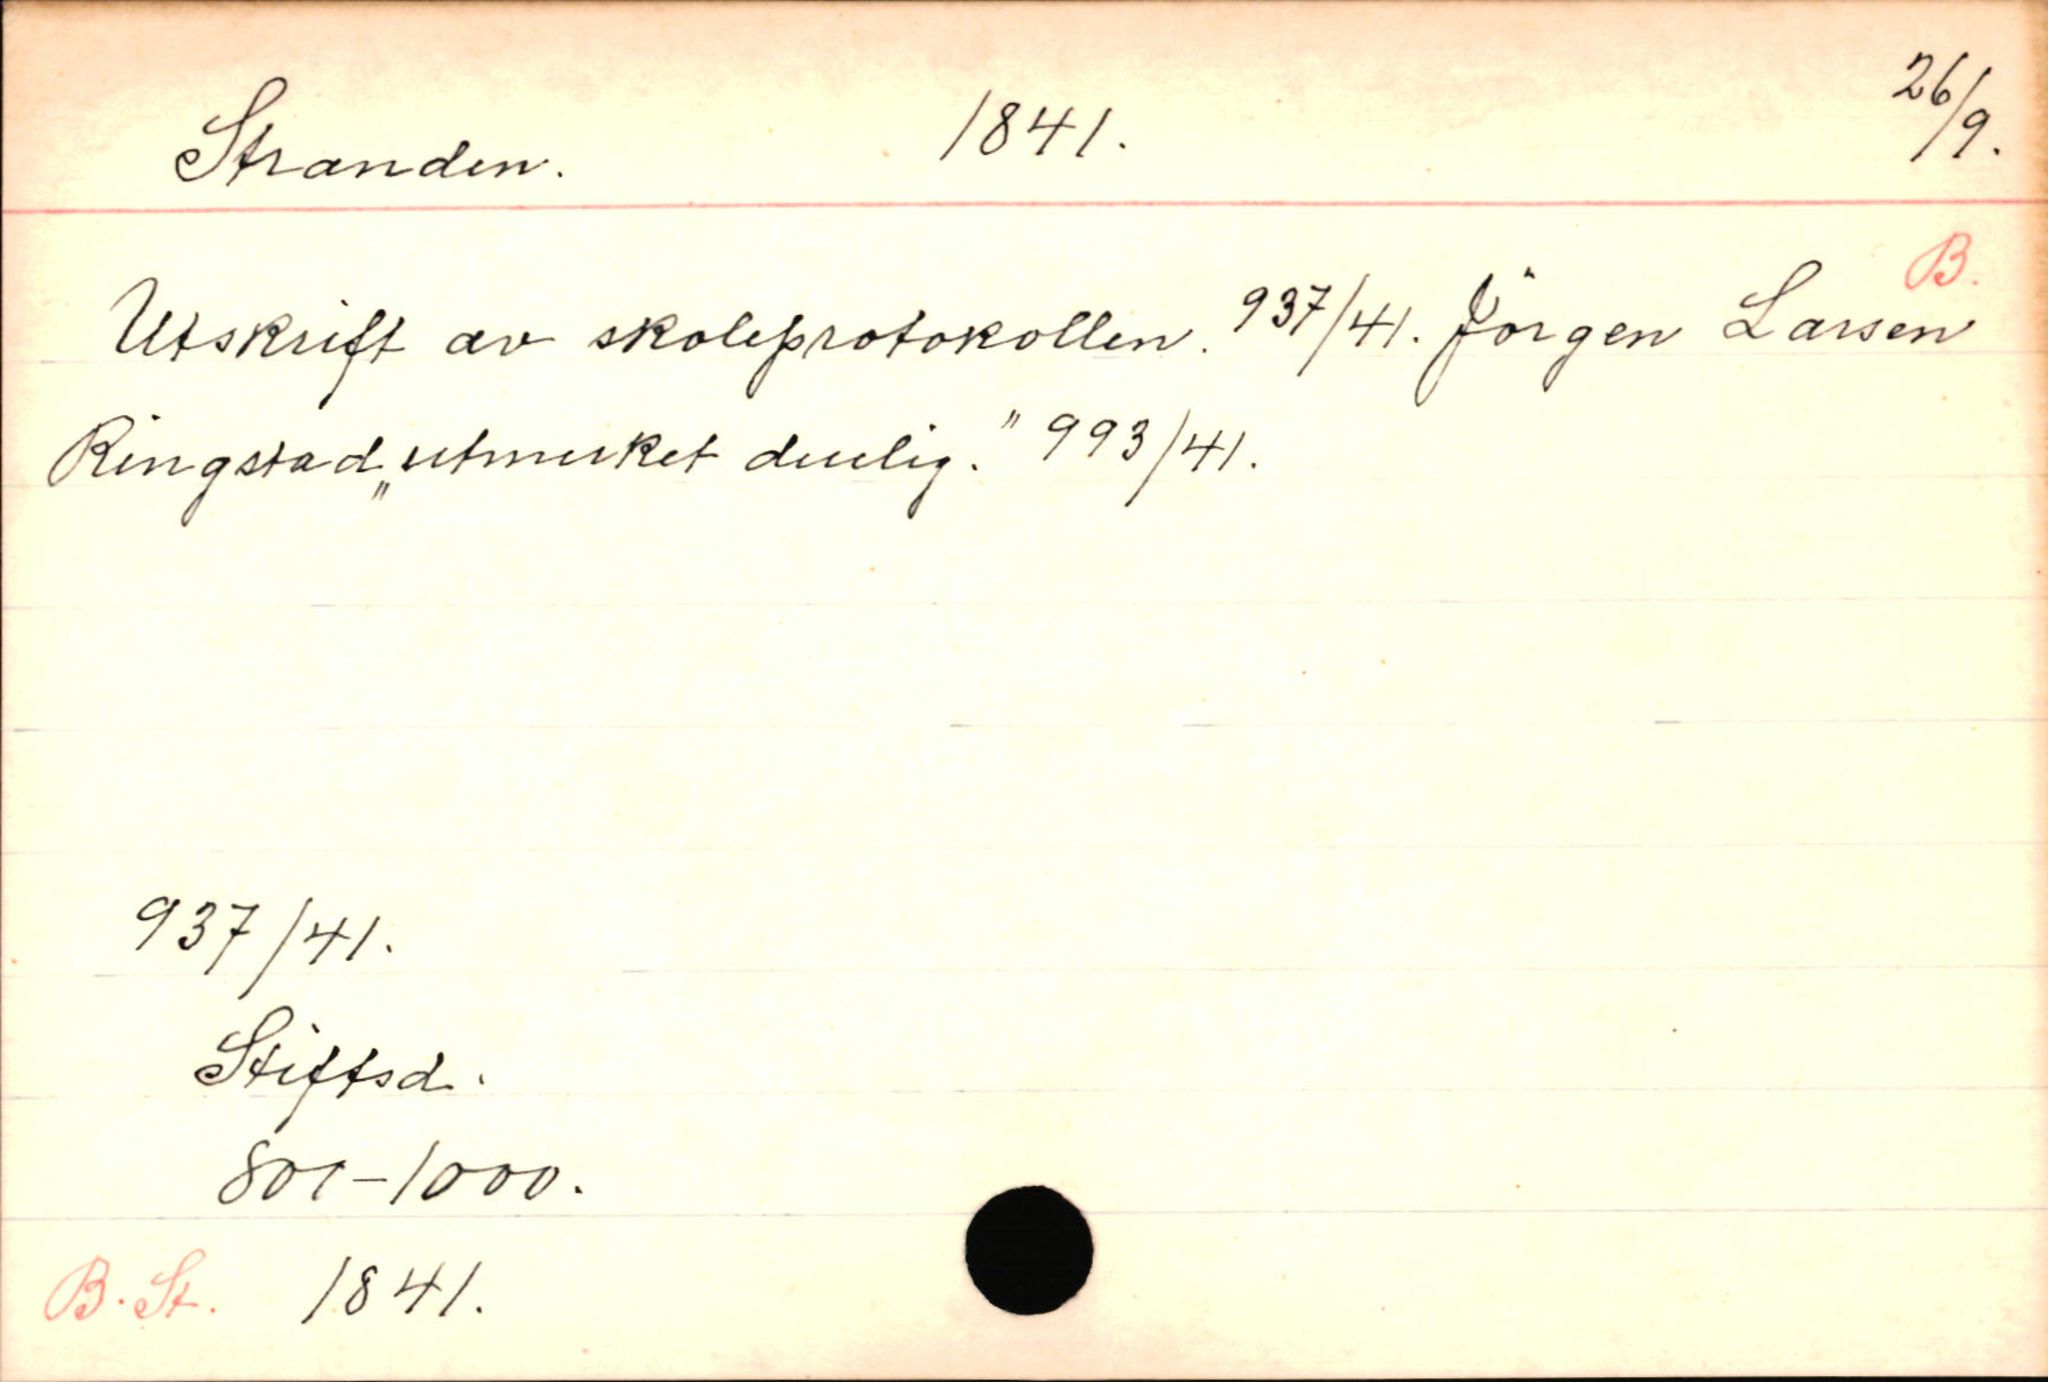 Stranden. 1841. 26/9.
B.
Utskrift av skoleprotokollen. 937/41. Jörgen Larsen
Ringstad „utmerket duelig." 993/41.
937/41.
Stiftsd.
801-1000.
B. St. 1841.